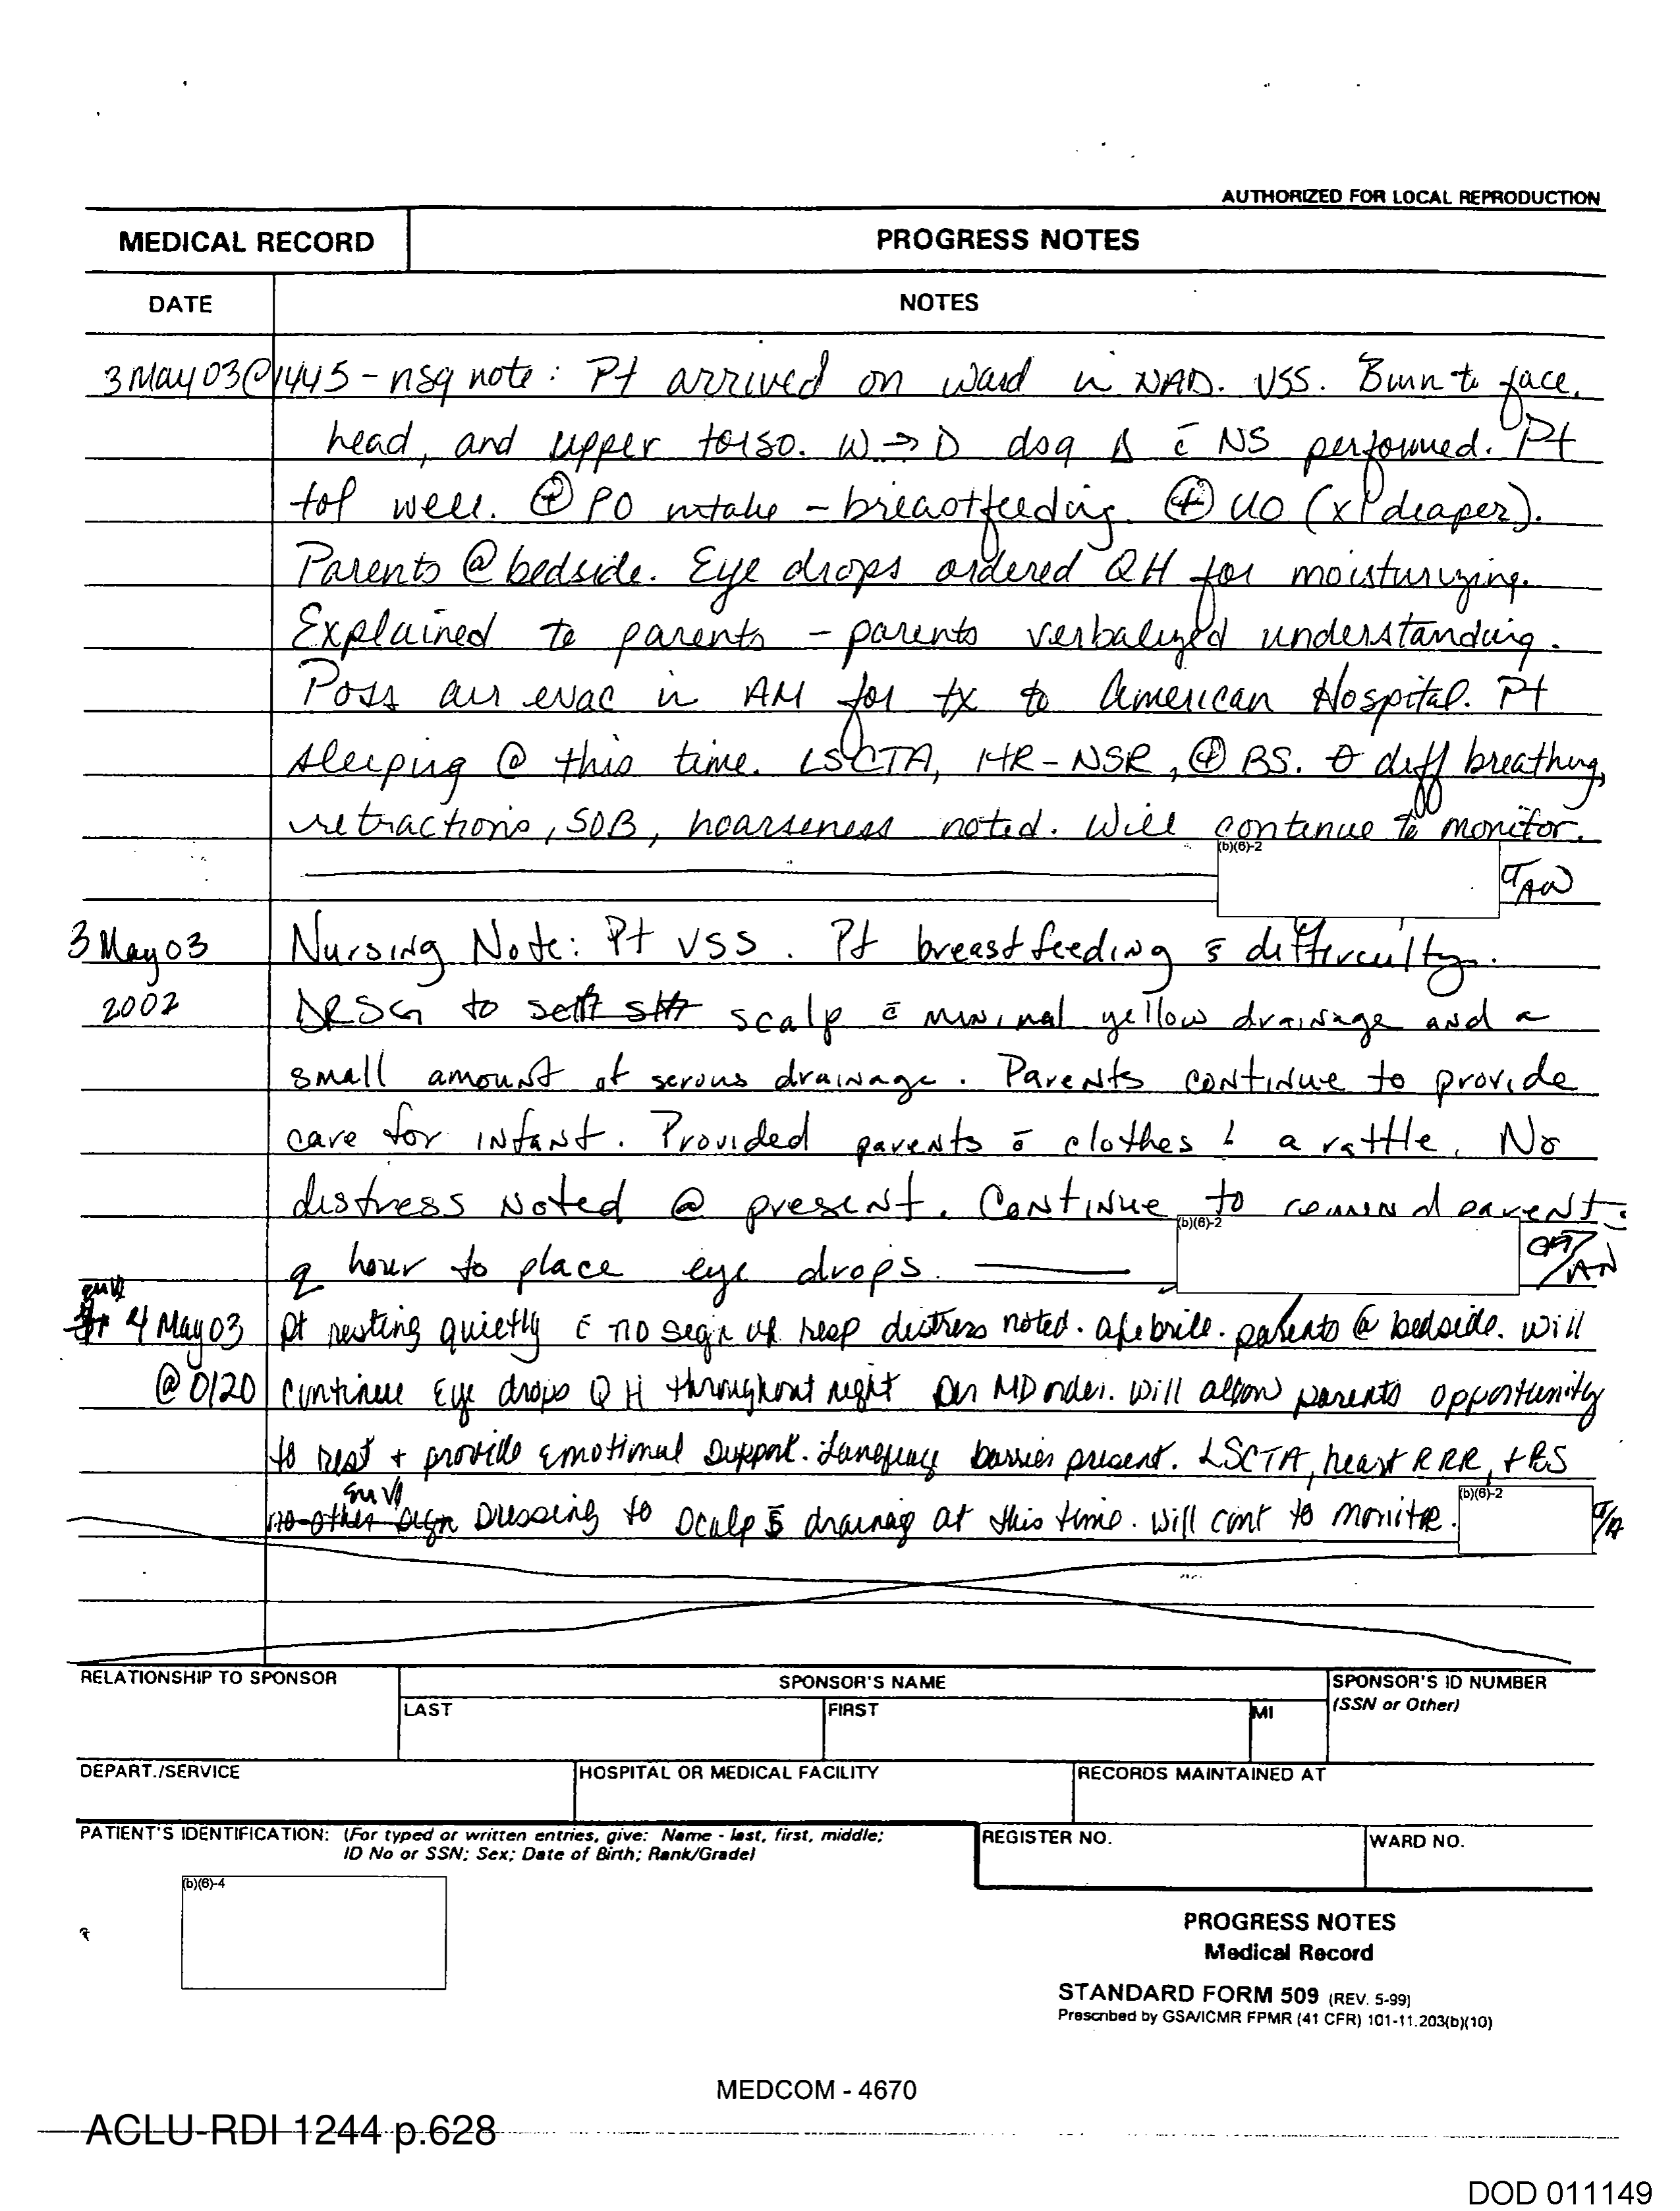 AUTHORIZED FOR LOCAL REPRODUCTION
MEDICAL RECORD PROGRESS NOTES
DATE NOTES
3 May 03 @ 1445 - nsg note: Pt arrived on ward in NAD. VSS. Burn to face,
head, and upper torso. W → D dsg Δ c̄ NS performed. Pt
tol well. ⊕ PO intake - breastfeeding. ⊕ UO (x 1 deaper).
Parents @ bedside. Eye drops ordered QH for moisturizing.
Explained to parents - parents verbalized understanding.
Poss air evac in AM for tx to American Hospital. Pt
sleeping @ this time. LSCTA, HR-NSR, ⊕ BS. ∅ diff breathing,
retractions, SOB, hoarseness noted. Will continue to monitor.
(b)(6)-2
3 May 03 Nursing Note: Pt VSS. Pt breast feeding s̄ difficulty.
2002 DRSG to scalp c̄ minimal yellow drainage and a
small amount of serous drainage. Parents continue to provide
care for infant. Provided parents c̄ clothes & a rattle. No
distress noted @ present. Continue to remind parents
(b)(6)-2
q hour to place eye drops.
4 May 03 pt resting quietly c̄ no sign of resp distress noted. afebrile. parents @ bedside. will
@ 0120 continue Eye drops QH throughout night per MD order. will allow parents opportunity
to rest + provide emotional support. Language barrier present. LSCTA, heart RRR, + BS
no other sign Dressing to scalp s̄ drainag at this time. will cont to monitor.
(b)(6)-2
RELATIONSHIP TO SPONSOR SPONSOR'S NAME SPONSOR'S ID NUMBER
LAST FIRST MI (SSN or Other)
DEPART./SERVICE HOSPITAL OR MEDICAL FACILITY RECORDS MAINTAINED AT
PATIENT'S IDENTIFICATION: (For typed or written entries, give: Name - last, first, middle; REGISTER NO. WARD NO.
ID No or SSN; Sex; Date of Birth; Rank/Grade)
(b)(6)-4
PROGRESS NOTES
Medical Record
STANDARD FORM 509 (REV. 5-99)
Prescribed by GSA/ICMR FPMR (41 CFR) 101-11.203(b)(10)
MEDCOM - 4670
ACLU-RDI 1244 p.628
DOD 011149